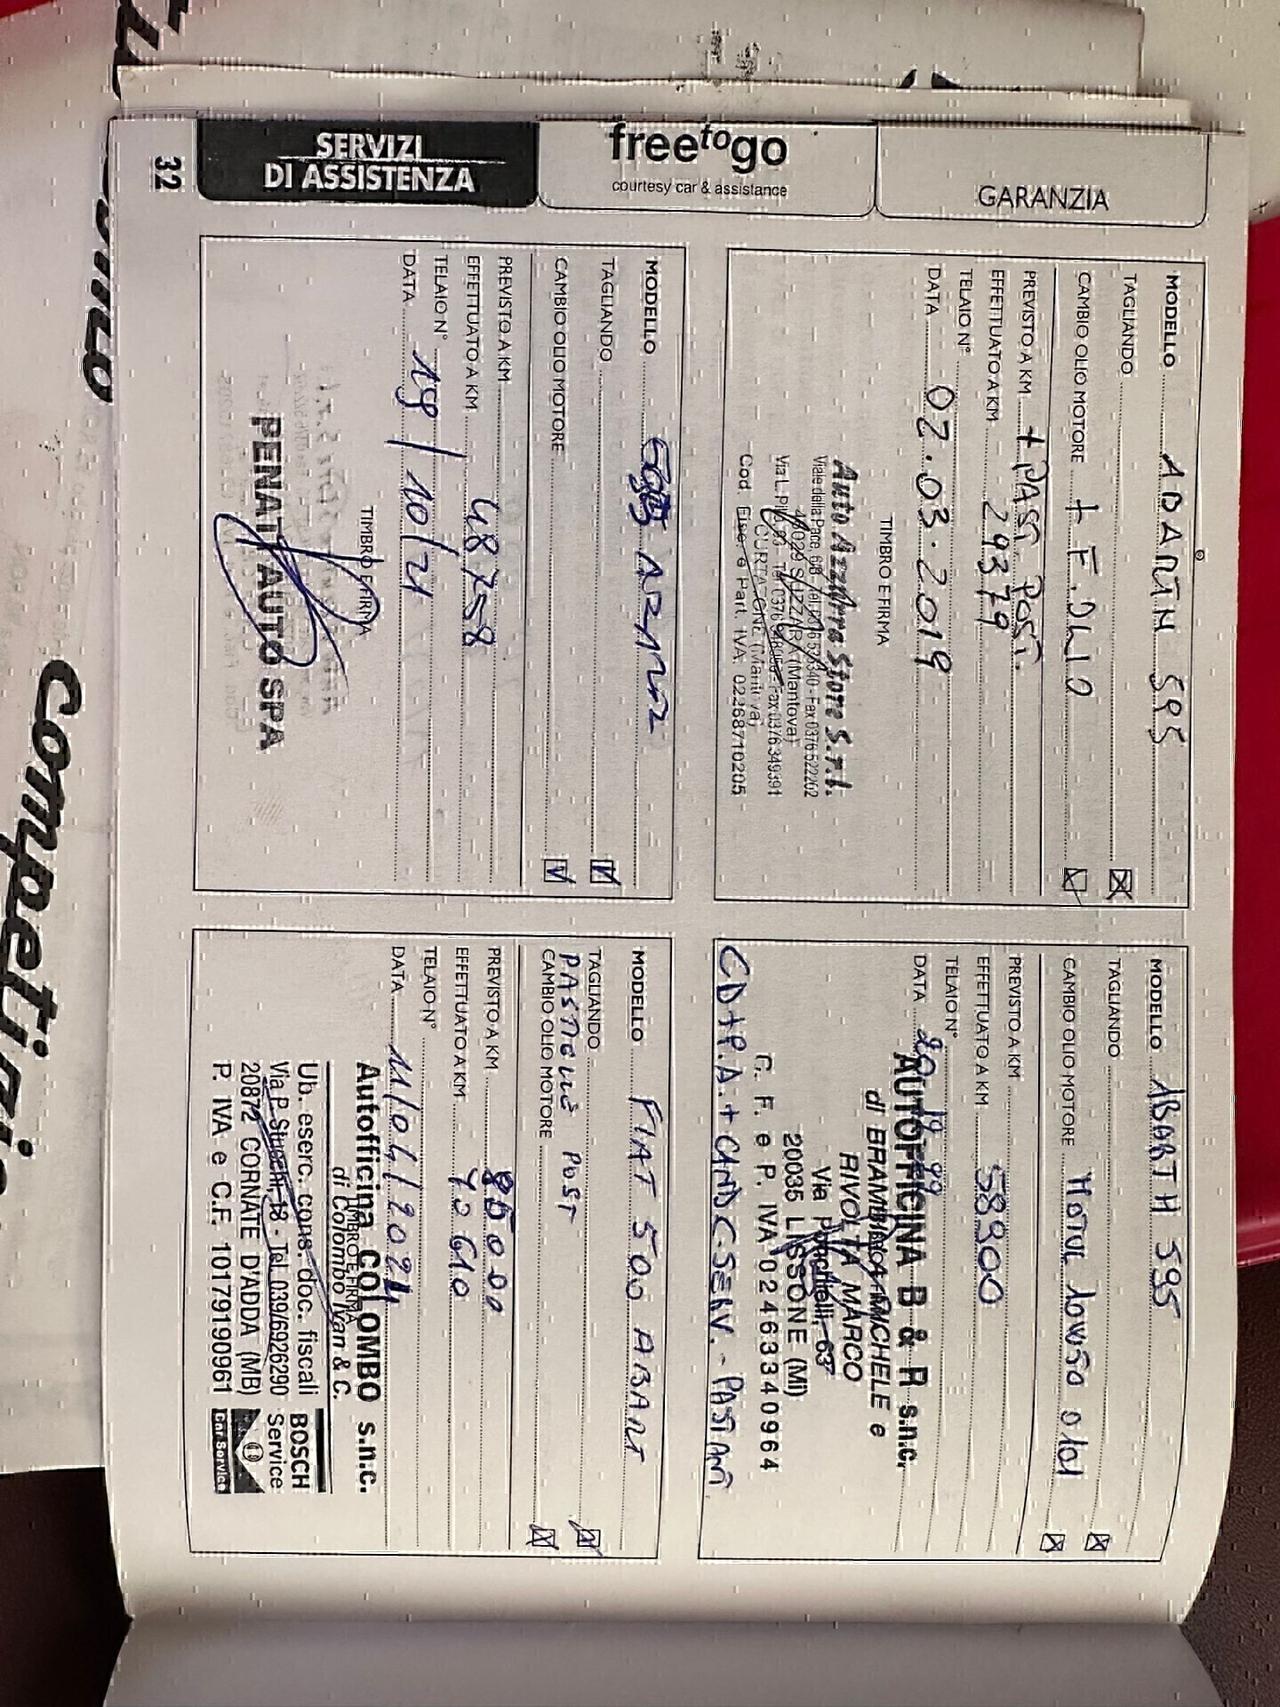 GARANZIA
free to go
courtesy car & assistance
SERVIZI
DI ASSISTENZA
32
MODELLO ABARTH 595
TAGLIANDO
CAMBIO OLIO MOTORE + F. OLIO
PREVISTO A KM + PAST. POST.
EFFETTUATO A KM 29379
TELAIO N°
DATA 02.03.2019
TIMBRO E FIRMA
Auto Azzurra Store S.r.l.
Viale della Pace, Fax 0376 522262
46029 SUZZARA (Mantova)
Via L. Fax 0376 349391
CURTATONE (Mantova)
Cod. Fisc. e Part. IVA 02268710205
MODELLO ABARTH 595
TAGLIANDO
CAMBIO OLIO MOTORE MOTUL 10W50
PREVISTO A KM
EFFETTUATO A KM 58900
TELAIO N°
DATA
AUTOFFICINA B & R s.n.c.
di BRAMBILLA MICHELE e
RIVOLTA MARCO
Via Ponchielli, 63
20035 LISSONE (MI)
C. F. e P. IVA 02463340964
MODELLO 595 ABARTH
TAGLIANDO
CAMBIO OLIO MOTORE
PREVISTO A KM
EFFETTUATO A KM 48758
TELAIO N°
DATA 19/10/21
TIMBRO E FIRMA
PENATI AUTO SPA
MODELLO FIAT 500 ABART
TAGLIANDO
PASTICLIE POST
CAMBIO OLIO MOTORE
PREVISTO A KM 85000
EFFETTUATO A KM 70610
TELAIO N°
DATA 11/04/2024
TIMBRO E FIRMA
Autofficina COLOMBO s.n.c.
di Colombo Ivan & C.
Ub. eserc. cons. doc. fiscali
Via P. Stucchi, 18 - Tel. 039/6926290
20872 CORNATE D'ADDA (MB)
P. IVA e C.F. 10179190961
BOSCH
Service
Car Service
Competizione